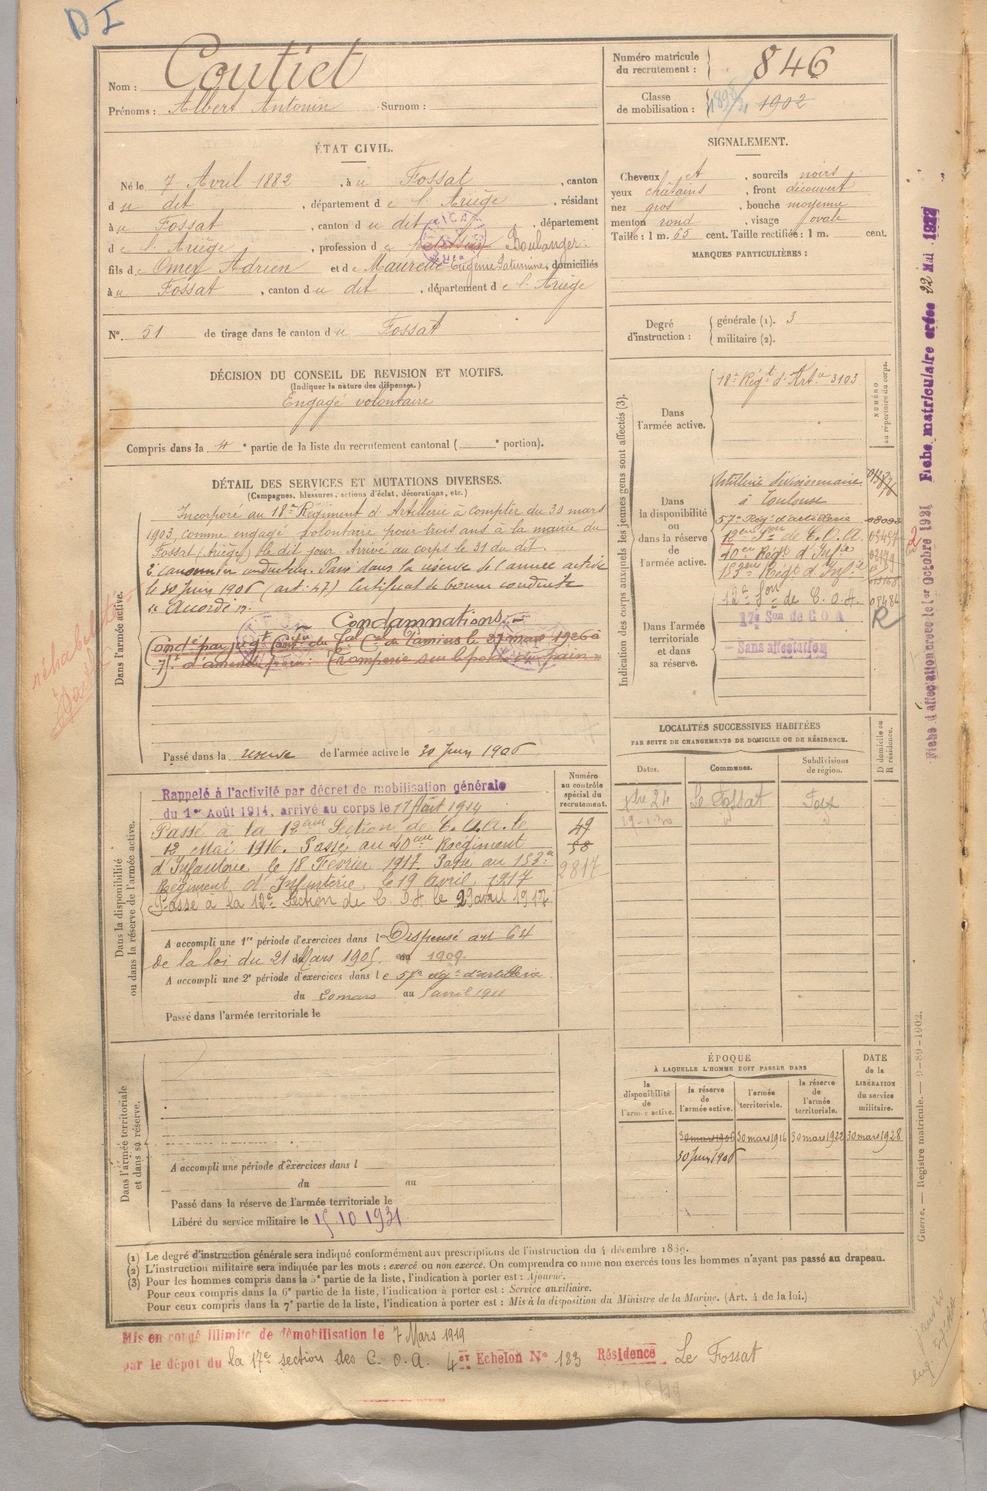 D I
Nom : Coutiet
Prénoms : Albert Antonin Surnom :
ÉTAT CIVIL.
Né le 7 Avril 1882, à u Fossat, canton
d u dit, département d e l'Ariège, résidant
à u Fossat, canton d u dit, département
d e l'Ariège, profession d e Boulanger.
fils d e Omer Adrien et d e Maurette Eugénie Saturnine, domiciliés
à u Fossat, canton d u dit, département d e l'Ariège
N°. 51 de tirage dans le canton d u Fossat
DÉCISION DU CONSEIL DE REVISION ET MOTIFS.
(Indiquer la nature des dispenses.)
Engagé volontaire
Compris dans la 4e partie de la liste du recrutement cantonal ( e portion).
DÉTAIL DES SERVICES ET MUTATIONS DIVERSES.
(Campagnes, blessures, actions d'éclat, décorations, etc.)
Dans l'armée active.
Incorporé au 18e Régiment d'Artillerie à compter du 30 mars
1903, comme engagé volontaire pour trois ans à la mairie du
Fossat (Ariège) le dit jour. Arrivé au corps le 31 du dit.
2e canonnier conducteur. Passé dans la réserve de l'armée active
le 30 Juin 1906 (art. 47) Certificat de bonne conduite
"Accordé".
Condamnations
Condé par jugt Contre du Cor de Pamiers le 27 mars 1926 à
7f d'amende pour : Tromperie sur le poids du pain
Passé dans la réserve de l'armée active le 30 Juin 1906
Dans la disponibilité ou dans la réserve de l'armée active.
Numéro au contrôle spécial du recrutement.
Rappelé à l'activité par décret de mobilisation générale
du 1er Août 1914, arrivé au corps le 11 Août 1914
Passé à la 12eme Section de C.O.A. le 49
12 Mai 1916. Passé au 40eme Régiment 58
d'Infanterie le 18 Février 1917. Passé au 153e 2817
Régiment d'Infanterie, le 19 avril 1917
Passé à la 12e Section de C.O.A le 29 avril 1917
A accompli une 1re période d'exercices dans l Dispensé art 64
de la loi du 21 Mars 1905. au 1909.
A accompli une 2e période d'exercices dans l e 57e régt d'artillerie
du 20 mars au 5 avril 1911
Passé dans l'armée territoriale le
Dans l'armée territoriale et dans sa réserve.
A accompli une période d'exercices dans l
du au
Passé dans la réserve de l'armée territoriale le
Libéré du service militaire le 15.10.1931
Numéro matricule du recrutement : 846
Classe de mobilisation : 1902
SIGNALEMENT.
Cheveux et, sourcils noirs
yeux châtains, front découvert
nez gros, bouche moyenne
menton rond, visage ovale
Taille : 1 m. 55 cent. Taille rectifiée : 1 m. cent.
MARQUES PARTICULIÈRES :
Degré d'instruction : générale (1). 3
militaire (2).
Indication des corps auxquels les jeunes gens sont affectés (3).
NUMÉRO au répertoire du corps.
Dans l'armée active.
18e Régt d'Artie 3103
Dans la disponibilité ou dans la réserve de l'armée active.
Artillerie divisionnaire
à Toulouse
57e Régt d'artillerie
12e Son de C.O.A.
40e Régt d'Infie
153eme Régt d'Infie
12e Son de C.O.A.
R
Dans l'armée territoriale et dans sa réserve.
17e Son de C O A
- Sans affectation
LOCALITÉS SUCCESSIVES HABITÉES
PAR SUITE DE CHANGEMENTS DE DOMICILE OU DE RÉSIDENCE.
Dates. Communes. Subdivisions de région. D domicile ou R résidence.
Xbre 24 Le Fossat Foix
ÉPOQUE
À LAQUELLE L'HOMME DOIT PASSER DANS
DATE de la LIBÉRATION du service militaire.
la disponibilité de l'armée active. la réserve de l'armée active. l'armée territoriale. la réserve de l'armée territoriale.
30 mars 1906 30 mars 1916 30 mars 1922 30 mars 1928
30 Juin 1906
Fiche d'affectation créée le 1er Octobre 1921 Fiche matriculaire créée 22 Mai
Guerre. — Registre matricule. — 9-89-1902.
(1) Le degré d'instruction générale sera indiqué conformément aux prescriptions de l'instruction du 4 décembre 1889.
(2) L'instruction militaire sera indiquée par les mots : exercé ou non exercé. On comprendra comme non exercés tous les hommes n'ayant pas passé au drapeau.
(3) Pour les hommes compris dans la 5e partie de la liste, l'indication à porter est : Ajourné.
Pour ceux compris dans la 6e partie de la liste, l'indication à porter est : Service auxiliaire.
Pour ceux compris dans la 7e partie de la liste, l'indication à porter est : Mis à la disposition du Ministre de la Marine. (Art. 4 de la loi.)
Mis en congé illimité de démobilisation le 7 Mars 1919
par le dépôt du la 17e section des C.O.A. 4e Echelon N° 183 Résidence Le Fossat